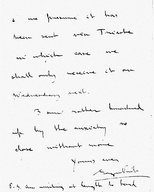 & we presume it has
been sent via Trieste
in which case we
shall only receive it on
Wednesday next.
I am rather knocked
up by the anxiety so
close without more
Yours ever
P.S. am writing at length to